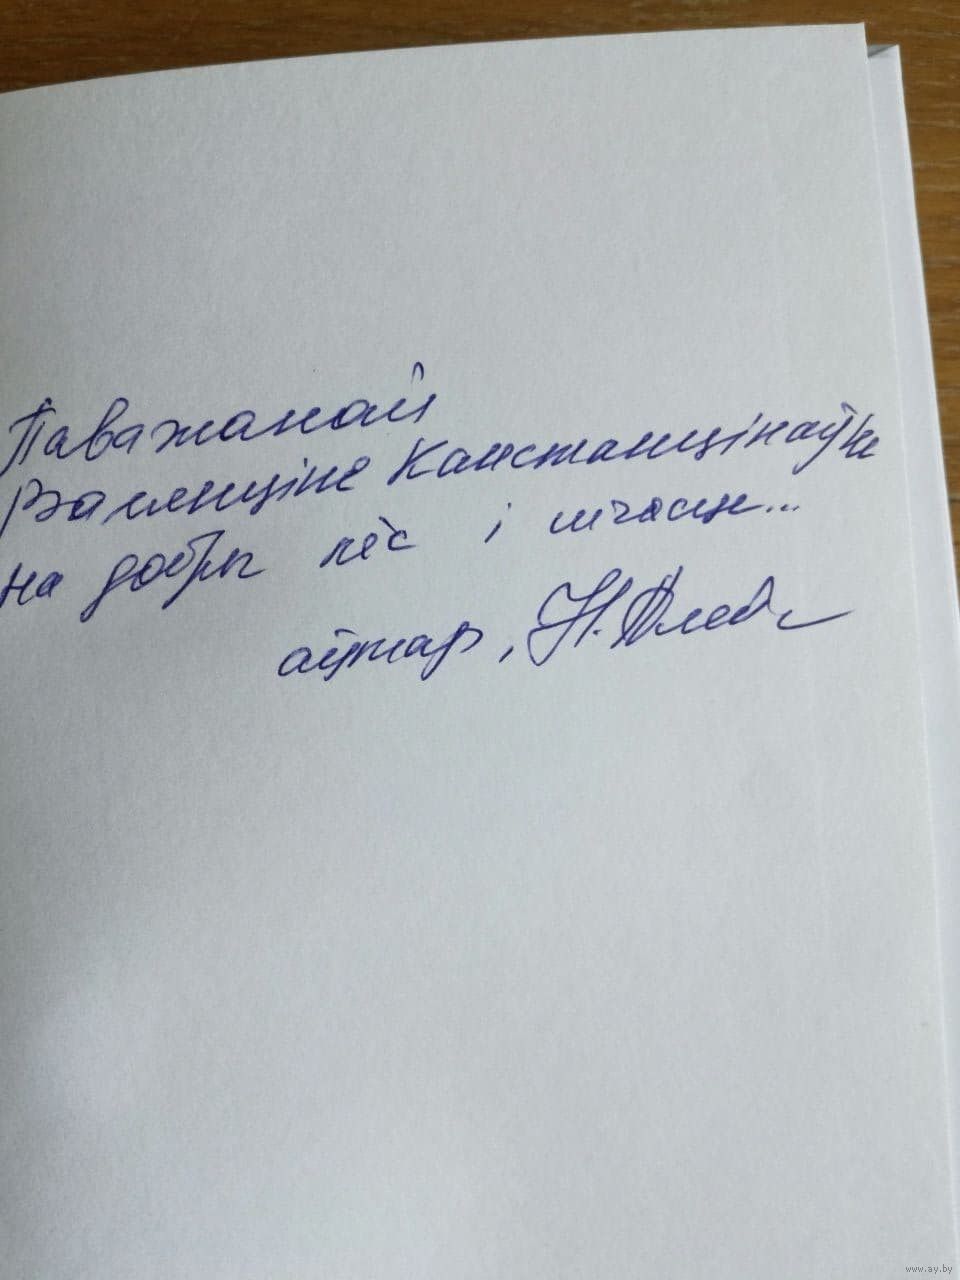 Паважанай
Валянціне Канстанцінаўне
на добры лёс і шчасце...
аўтар, Н.
www.ay.by